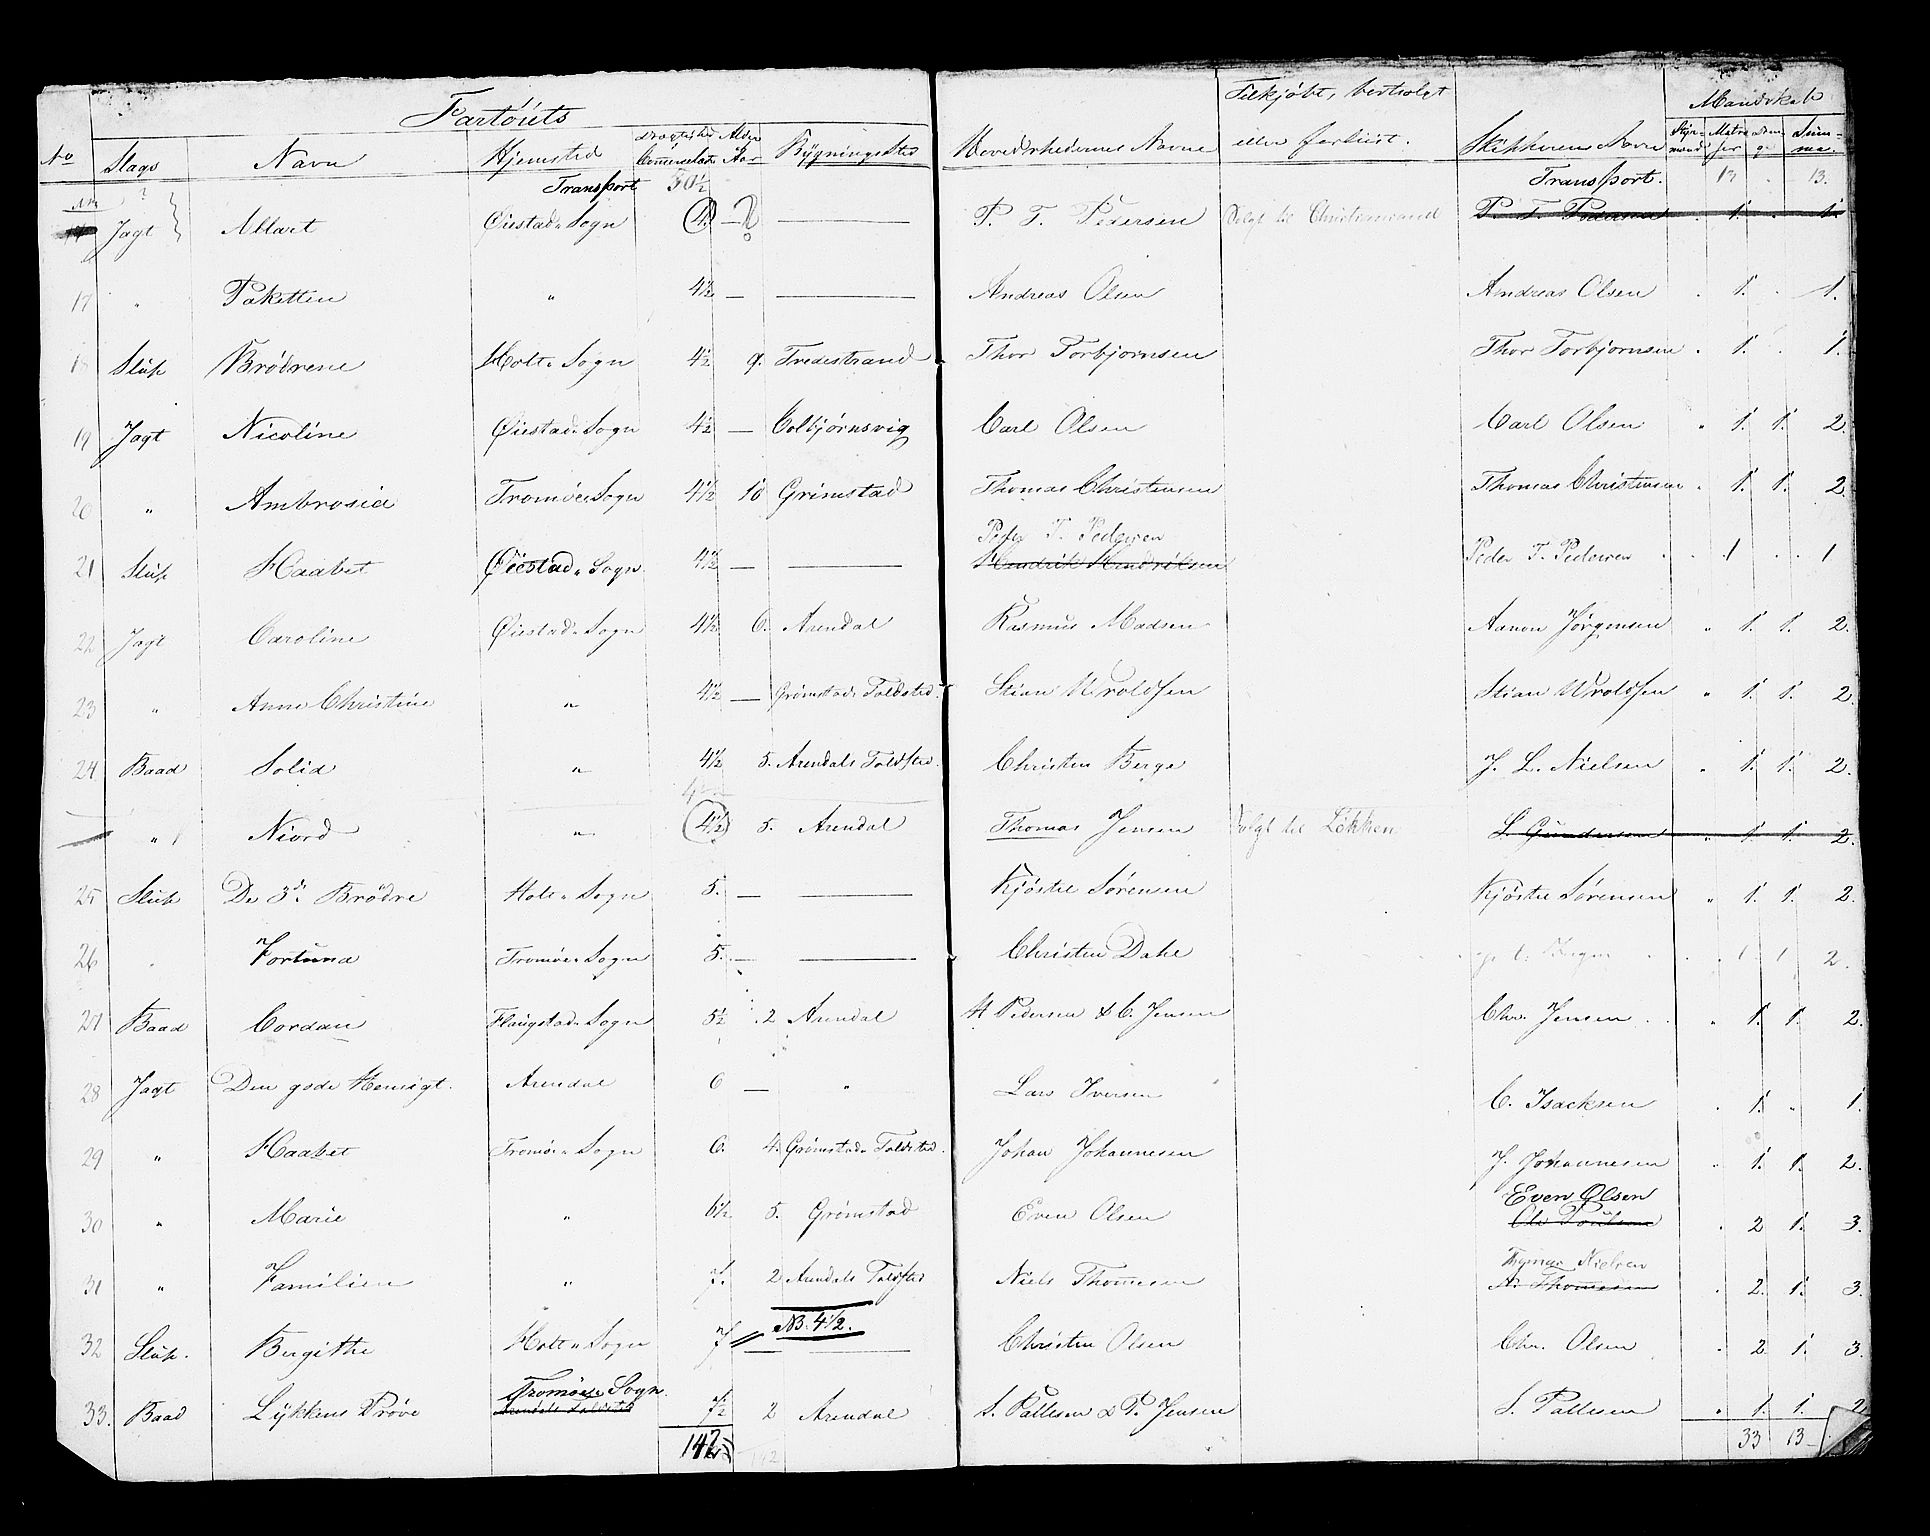 Fartöiets
Tilkjöbt, bortsolgt
Mandskab
No Slags Navn Hjemsted Drægtighed Commerselæster Alder Aar Bygnings Sted Hovedrhedernes Navne eller forliist. Skipperens Navn Styrmænd Matroser Summa.
Transport 50½ Transport. 13 . 13.
Jagt Ablart Öiestads Sogn 4. — ? — P. T. Pedersen Solgt til Christiansand P. T. Pedersen . 1. . 1.
17 " Paketten " 4½ — — Andreas Olsen Andreas Olsen . 1. . 1.
18 Slup Brödrene Holts Sogn 4½ 9. Tvedestrand Thor Torbjörnsen Thor Torbjörnsen . 1. . 1.
19 Jagt Nicoline Öiestads Sogn 4½ — Colbjörnsvig Carl Olsen Carl Olsen " 1. 1. 2.
20 " Ambrosia Tromöe Sogn 4½ 10 Grimstad Thomas Christensen Thomas Christensen . 1. 1. 2
Peder T. Pedersen
21 Slup Haabet Öiestads Sogn. 4½ — — Hendrik Hendriksen Peder T. Pedersen . 1 . 1
22 Jagt Caroline Öiestads Sogn 4½ 6. Arendal Rasmus Madsen Aanon Jörgensen " 1. 1. 2.
23 " Anne Christine " 4½ — Grömstads Toldsted. Stian Uroldsen Stian Uroldsen " 1. 1. 2.
24 Baad Solid " 4½ 5. Arendals Toldsted. Christen Berge J. L. Nielsen " 1. 1. 2.
" Niord " 4½ 5. Arendal Thomas Jensen Solgt til Lökken L. Gundersen " 1. 1. 2.
25 Slup De 3de Brödre Holts Sogn 5. — — Kjöstel Sörensen Kjöstel Sörensen " 1. 1. 2.
26 . Fortuna Tromöe Sogn 5. — — Christen Dahl 1 1 2.
27 Baad Cordan Flaugstads Sogn 5½ 2 Arendal H Pedersen & C. Jensen Chr. Jensen " 1. 1. 2.
28 Jagt Den gode Hensigt. Arendal 6 — " Lars Iversen C. Isacksen . 1. " 1.
29 " Haabet Tromöe Sogn 6. 4. Grömstads Toldsted. Johan Johannesen J. Johannesen " 1. 1. 2.
Even Olsen
30 " Marie " 6½ 5. Grömstad Even Olsen Ole Poulsen . 2 1. 3.
Thomas Nielsen
31 " Familien " 7. 2 Arendals Toldsted Niels Thomesen N. Thomesen . 2. 1. 3.
NB. 4½.
32 Slup. Bergithe Holts Sogn 7 — — Christen Olsen Chr. Olsen . 2 1. 3.
Tromöe Sogn.
33. Baad Lykkens Pröve Arendals Toldsted 7½ 2 Arendal S. Pallesen & P. Jensen S. Pallesen " 1. 1. 2
142 33 13